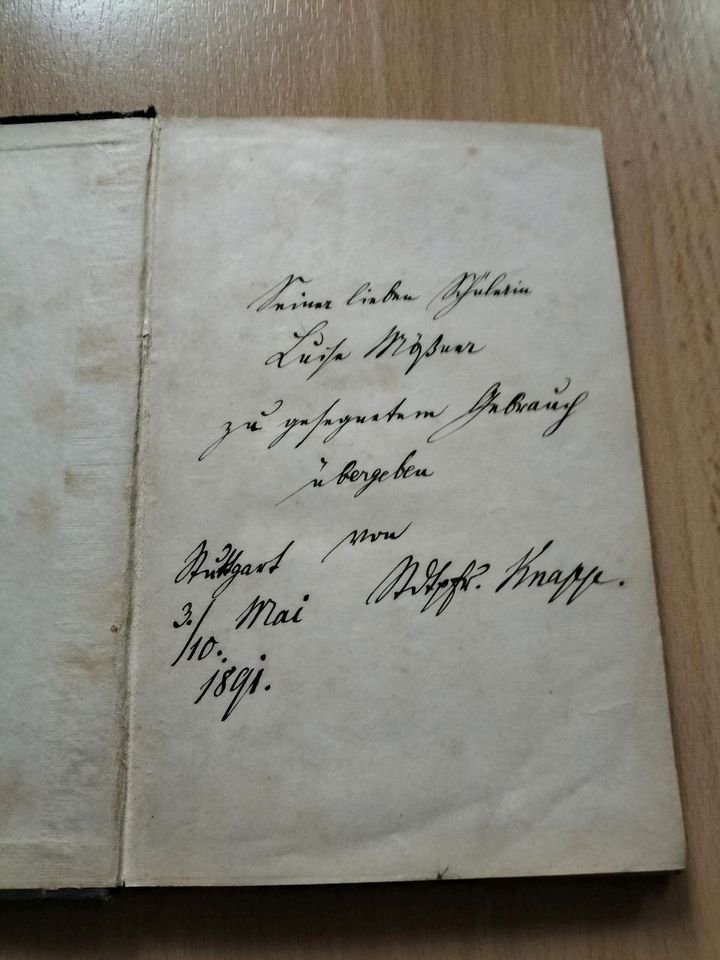 Seiner lieben Schülerin
Luise Mößner
zu gesegnetem Gebrauch
übergeben
von
Stdtpfr. Knapp.
Stuttgart
3./10. Mai
1891.